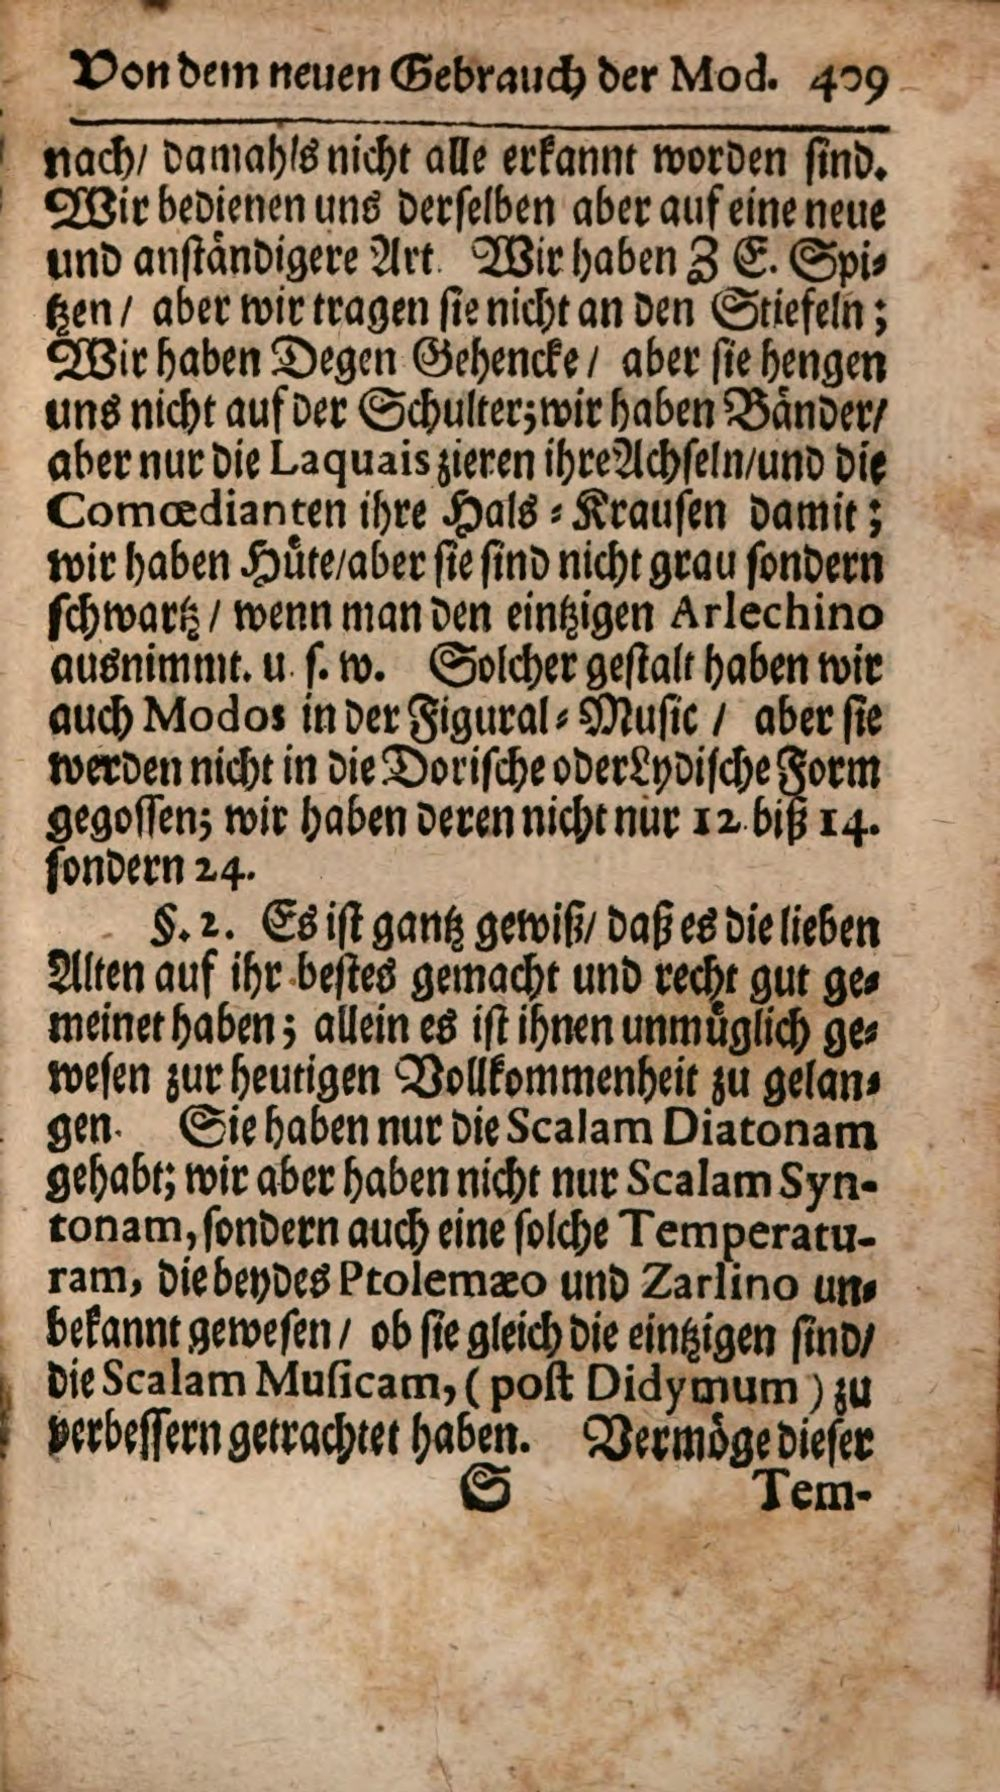 Von dem neuen Gebrauch der Mod. 409
nach/ damahls nicht alle erkannt worden sind.
Wir bedienen uns derselben aber auf eine neue
und anständigere Art. Wir haben Z E. Spi-
tzen / aber wir tragen sie nicht an den Stiefeln;
Wir haben Degen Gehencke / aber sie hengen
uns nicht auf der Schulter; wir haben Bänder/
aber nur die Laquais zieren ihre Achseln/und die
Comœdianten ihre Hals-Krausen damit;
wir haben Hüte/aber sie sind nicht grau sondern
schwartz / wenn man den eintzigen Arlechino
ausnimmt. u. s. w. Solcher gestalt haben wir
auch Modos in der Figural-Music / aber sie
werden nicht in die Dorische oder Lydische Form
gegossen; wir haben deren nicht nur 12. biß 14.
sondern 24.
§. 2. Es ist gantz gewiß/ daß es die lieben
Alten auf ihr bestes gemacht und recht gut ge-
meinet haben; allein es ist ihnen unmüglich ge-
wesen zur heutigen Vollkommenheit zu gelan-
gen. Sie haben nur die Scalam Diatonam
gehabt; wir aber haben nicht nur Scalam Syn-
tonam, sondern auch eine solche Temperatu-
ram, die beydes Ptolemæo und Zarlino un-
bekannt gewesen / ob sie gleich die eintzigen sind/
die Scalam Musicam, (post Didymum) zu
verbessern getrachtet haben. Vermöge dieser
S Tem-